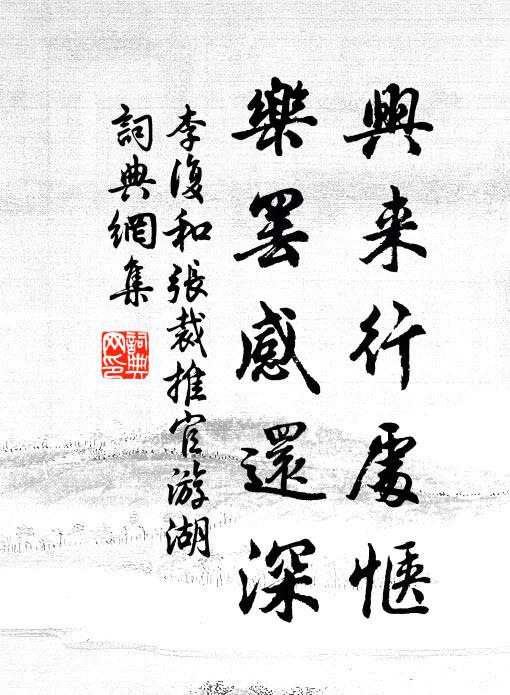 興来行處愜
樂罷感還深
李復和張裁推官游湖
詞典網集
詞典网印